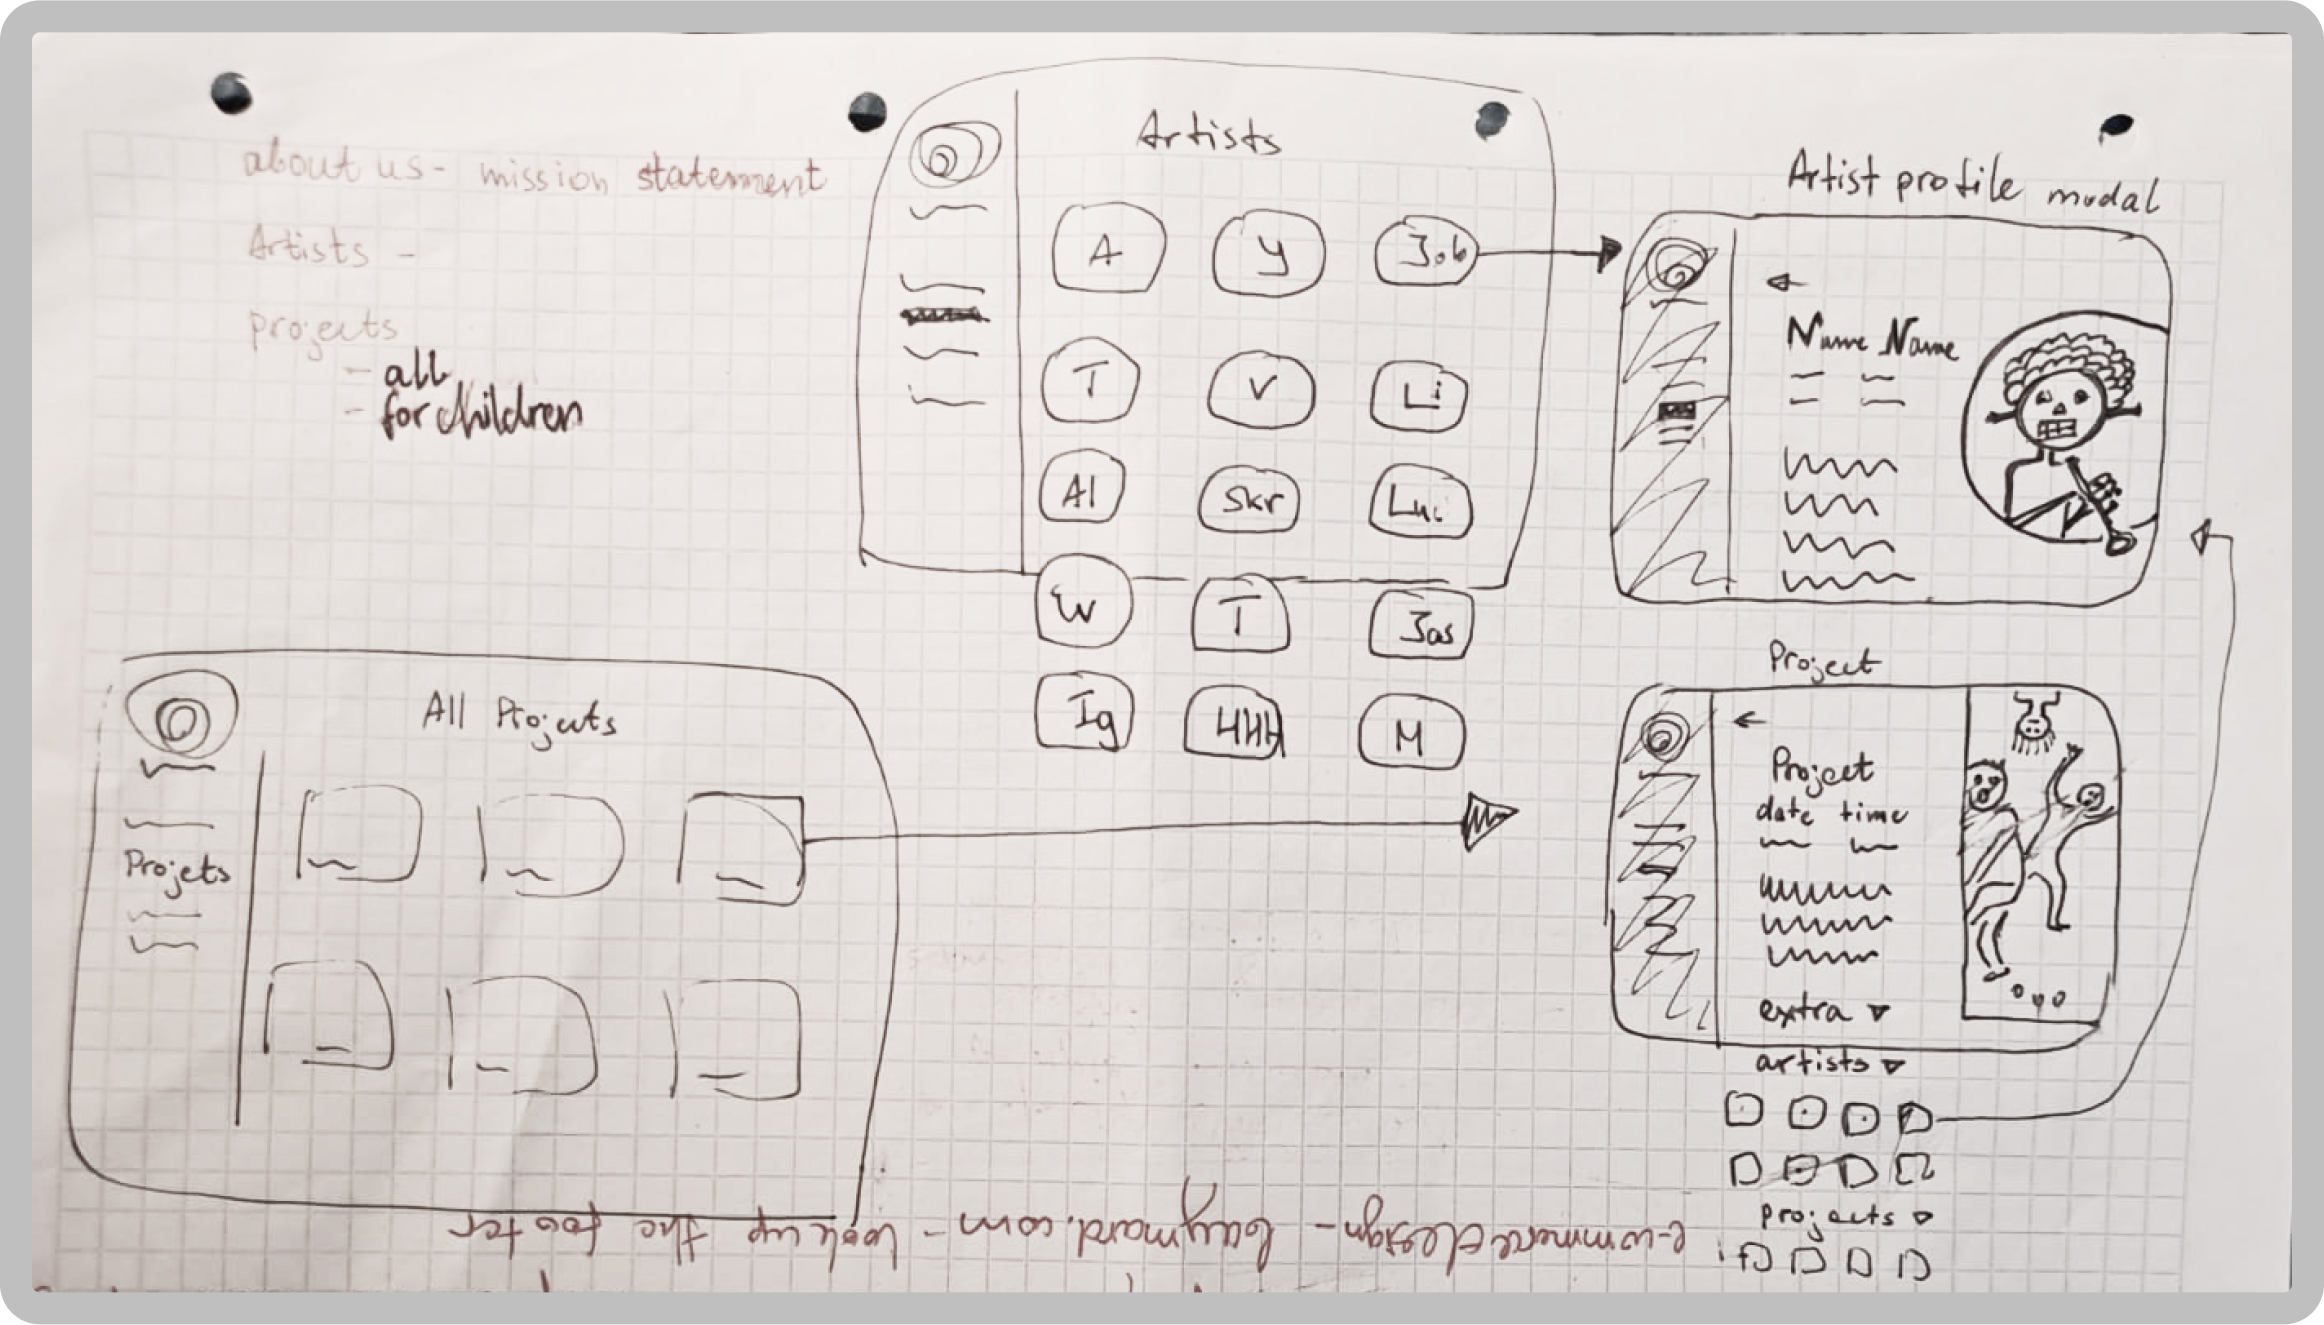 about us - mission statement
Artists -
projects
- all
- for children
Artists
A
Y
Job
T
V
Li
Al
Skr
Lui
W
T
Jas
Ig
HHH
M
Artist profile modal
←
Name Name
All Projects
Projets
Project
←
Project
date time
extra ▽
artists ▽
projects ▽
e-commerce design - baymard.com - look up the footer